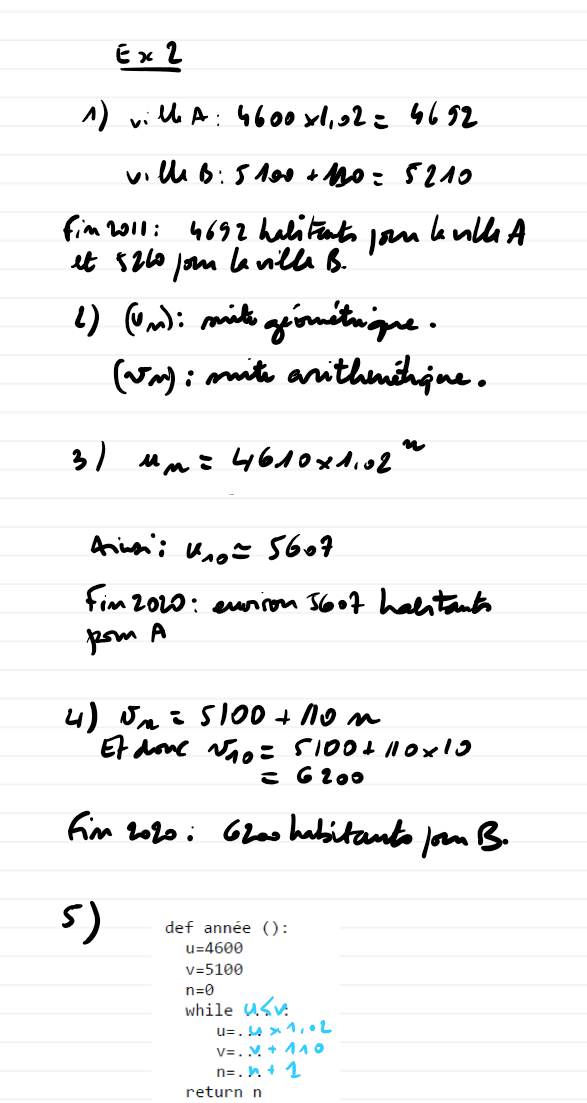 Ex 2
1) ville A : 4600 x 1,02 = 4692
ville B : 5100 + 110 = 5210
Fin 2011 : 4692 habitants pour la ville A
et 5210 pour la ville B.
2) (un) : suite géométrique.
(vn) : suite arithmétique.
3) un = 4610 x 1,02^n
Ainsi : u10 ≃ 5607
Fin 2020 : environ 5607 habitants
pour A
4) vn = 5100 + 110 n
Et donc v10 = 5100 + 110 x 10
= 6200
Fin 2020 : 6200 habitants pour B.
5)
def année ():
u=4600
v=5100
n=0
while u≤v:
u=... u x 1,02
v=... v + 110
n=... n + 1
return n